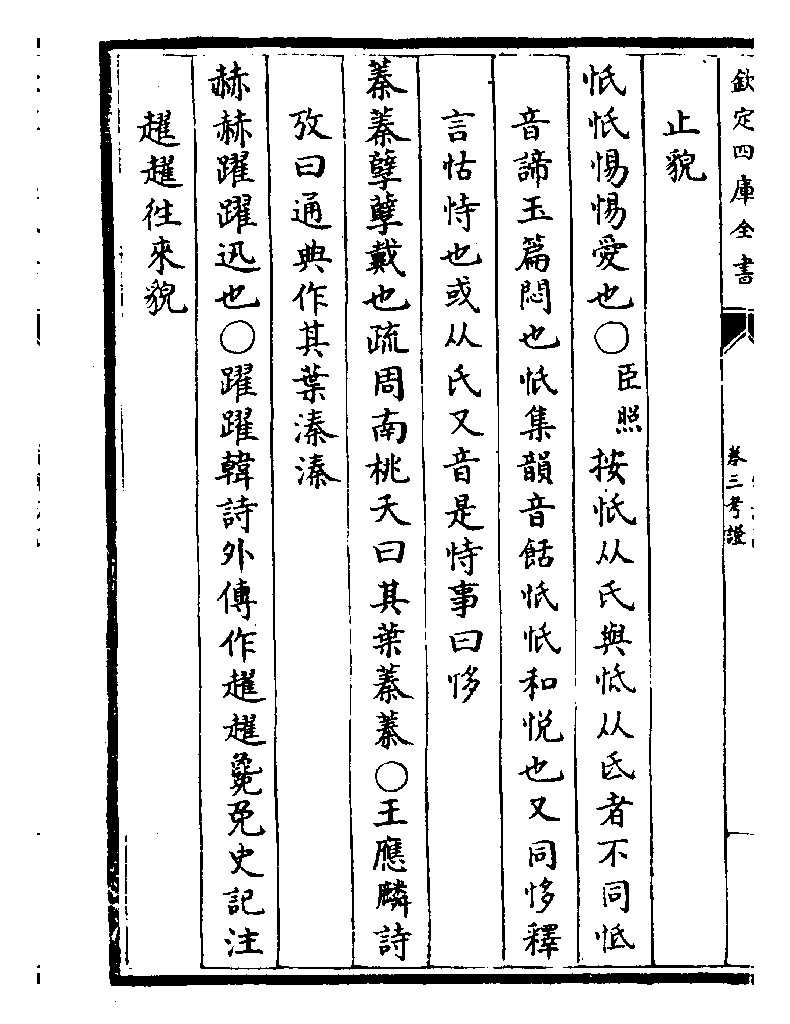 欽定四庫全書
卷三考證
止貌
忯忯惕惕愛也○臣照按忯从氏與怟从氐者不同怟
音諦玉篇悶也忯集韻音餂忯忯和悅也又同恀釋
言怙恃也或从氏又音是恃事曰恀
蓁蓁孽孽戴也疏周南桃夭曰其葉蓁蓁○王應麟詩
攷曰通典作其葉溱溱
赫赫躍躍迅也○躍躍韓詩外傳作趯趯毚兔史記注
趯趯往來貌